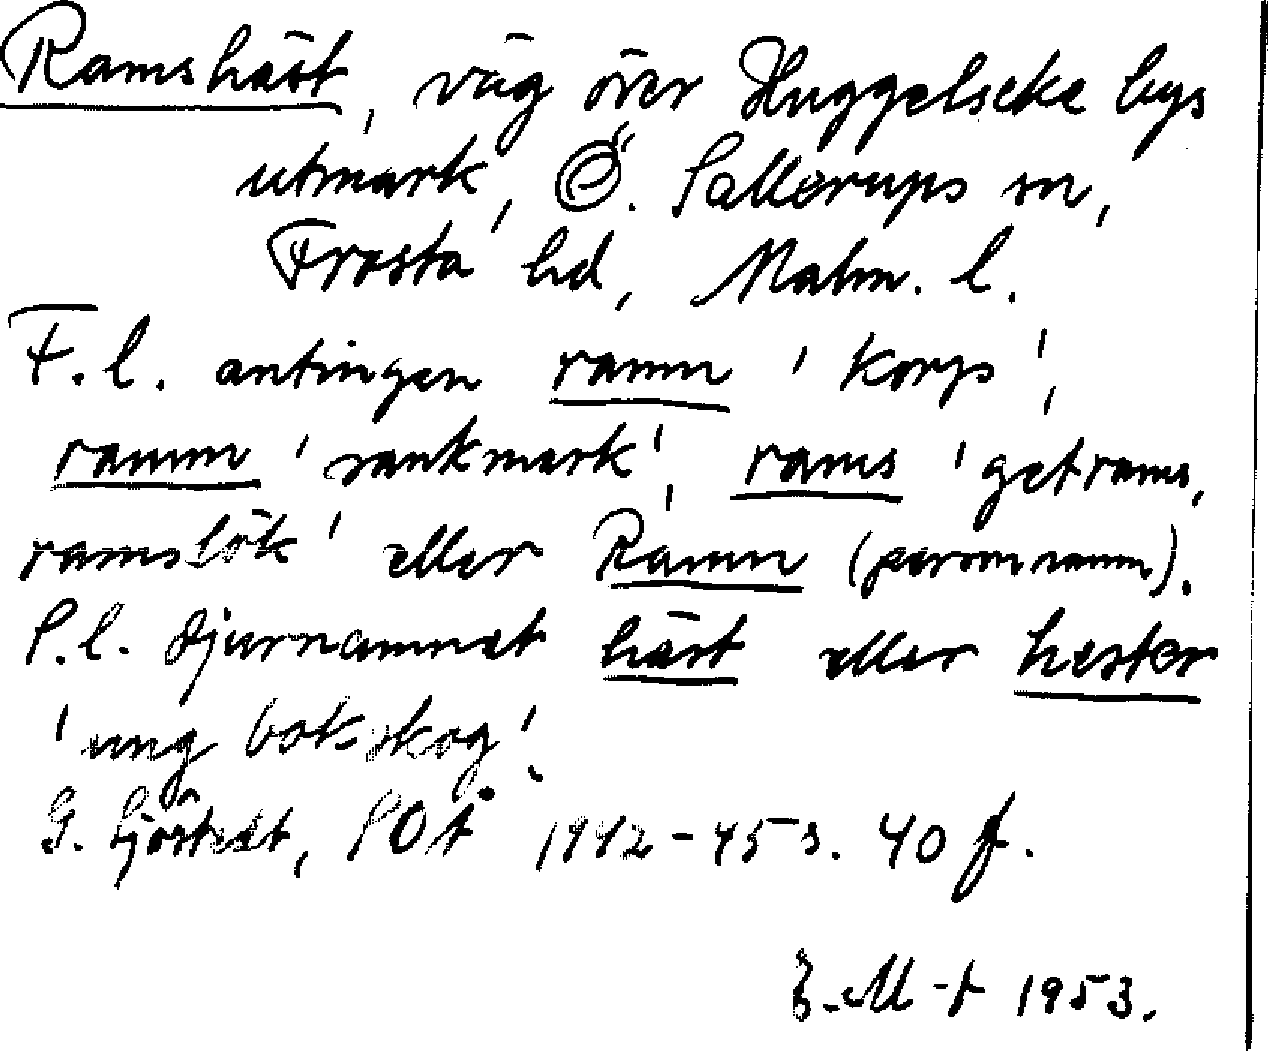 Ramshäst, väg över Huggelseke bys
utmark, Ö. Sallerups sn,
Frosta hd, Malm. l.
F. l. antingen ramn 'korp',
ramm 'sankmark', rams 'getrams,
ramslök' eller Ramn (personnamn).
S. l. djurnamnet häst eller hester
'ung bokskog'.
G. Sjöstedt, SOÅ 1942-45 s. 40 f.
E. M-t 1953.